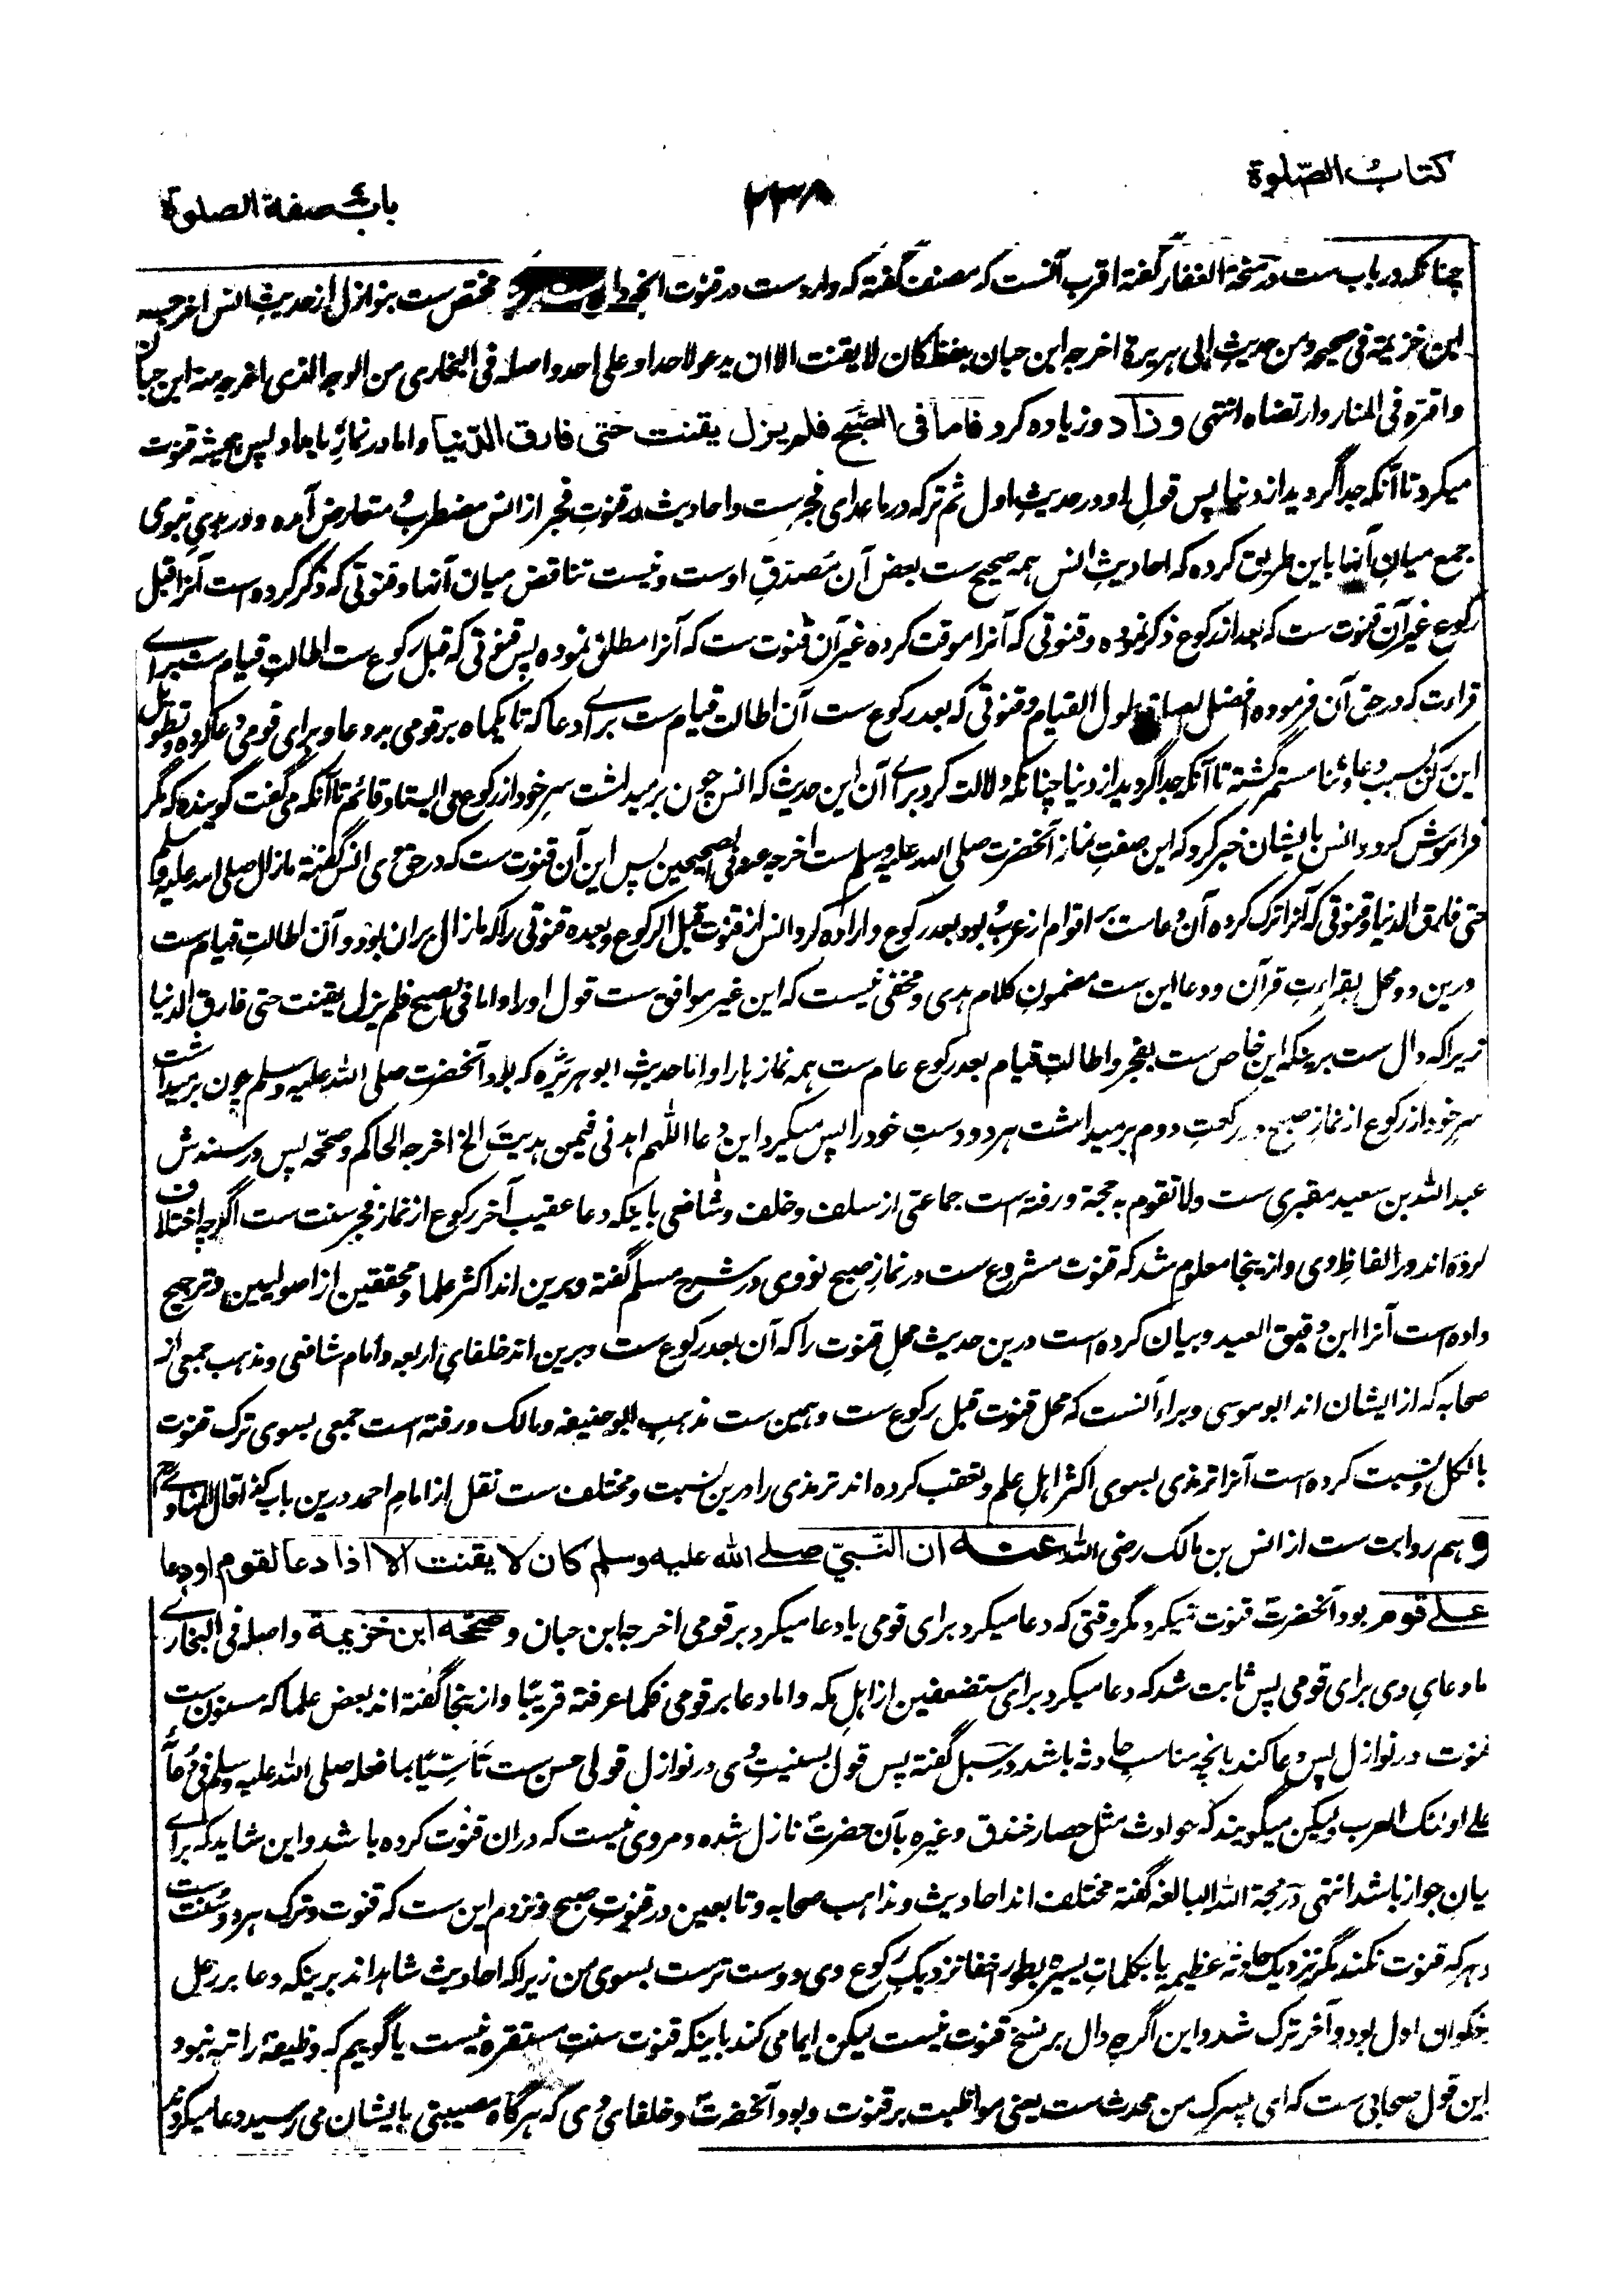 کتاب الصّلوة
۲۳۸
باب صفة الصلوة
چنانکه در باب ست در منحة الغفار گفته اقرب آنست که مصنف گفته که وارد ست در قنوت الخ مختص ست بنوازل از حدیث انس اخرجه
ابن خزیمة فی صحیحه و من حدیث ابی هریرة اخرجه ابن حبان بلفظ کان لا یقنت الا ان یدعو لاحد او علی احد و اصله فی البخاری من الوجه الذی اخرجه منه ابن حبان
و اقره فی المنار و ارتضاه انتهی و زاد و زیاده کرد فاما فی الصّبح فلم یزل یقنت حتی فارق الدّنیا و اما در نماز بامداد پس همیشه قنوت
میکرد تا آنکه جدا گردید از دنیا پس قول او در حدیث اول ثم ترکه در ما عدای فجر ست و احادیث در قنوت فجر از انس مضطرب و متعارض آمده و در هدی نبوی
جمع میان آنها باین طریق کرده که احادیث انس همه صحیح ست بعض آن مصدق اوست و نیست تناقض میان آنها و قنوتی که ذکر کرده است آنرا قبل
رکوع غیر آن قنوت ست که بعد از رکوع ذکر نموده و قنوتی که آنرا موقت کرده غیر آن قنوت ست که آنرا مطلق نموده پس قنوتی که قبل رکوع ست اطالت قیام ست برای
قراءت که در حق آن فرموده افضل الصلوة طول القیام و قنوتی که بعد رکوع ست آن اطالت قیام ست برای دعا که تا یکماه بر قومی بددعا و برای قومی دعا کرده و تطویل
این رکن بسبب دعا و ثنا مستمر گشته تا آنکه جدا گردید از دنیا چنانکه دلالت کرد برای آن این حدیث که انس چون برمیداشت سر خود از رکوع می ایستاد قائم تا آنکه می گفت گوینده که مگر
فراموش کرد و انس بایشان خبر کرد که این صفت نماز آنحضرت صلی الله علیه وسلم ست اخرجه عنه فی الصحیحین پس این آن قنوت ست که در حق وی انس گفته مازال صلی الله علیه وسلم
حتی فارق الدنیا و قنوتی که آنرا ترک کرده آن دعاست بر اقوام از عرب و بود بعد رکوع و اراده کرد انس از قنوت قبل الرکوع و بعده قنوتی را که مازال بران بود و آن اطالت قیام ست
درین دو محل بقراءت قرآن و دعا این ست مضمون کلام هدی و مخفی نیست که این غیر موافق ست قول او را و اما فی الصبح فلم یزل یقنت حتی فارق الدنیا
زیرا که دال ست برینکه این خاص ست بفجر و اطالت قیام بعد رکوع عام ست همه نمازها را و اما حدیث ابو هریره که بود آنحضرت صلی الله علیه وسلم چون برمیداشت
سر خود از رکوع از نماز صبح در رکعت دوم برمیداشت هر دو دست خود را پس میکرد این دعا اللهم اهدنی فیمن هدیت الخ اخرجه الحاکم و صححه پس در سندش
عبد الله بن سعید مقبری ست و لا تقوم به حجة و رفته است جماعتی از سلف و خلف و شافعی باینکه دعا عقیب آخر رکوع از نماز فجر سنت ست اگرچه اختلاف
کرده اند در الفاظ وی و ازینجا معلوم شد که قنوت مشروع ست در نماز صبح نووی در شرح مسلم گفته و برین اند اکثر علما و محققین از اصولیین و ترجیح
داده است آنرا ابن دقیق العید و بیان کرده است درین حدیث محل قنوت را که آن بعد رکوع ست و برین اند خلفای اربعه و امام شافعی و مذهب جمعی از
صحابه که از ایشان اند ابو موسی و براء آنست که محل قنوت قبل رکوع ست و همین ست مذهب ابو حنیفه و مالک و رفته است جمعی بسوی ترک قنوت
بالکل و نسبت کرده است آنرا ترمذی بسوی اکثر اهل علم و تعقب کرده اند ترمذی را درین نسبت و مختلف ست نقل از امام احمد درین باب کذا قال المناوی
و هم روایت ست از انس بن مالک رضی الله عنه ان النّبیّ صلی الله علیه وسلم کان لا یقنت الا اذا دعا لقوم او دعا
علی قوم بود آنحضرت قنوت نمیکرد مگر وقتی که دعا میکرد برای قومی یا دعا میکرد بر قومی اخرجه ابن حبان و صححه ابن خزیمة و اصله فی البخاری
اما دعای وی برای قومی پس ثابت شد که دعا میکرد برای مستضعفین از اهل مکه و اما دعا بر قومی فکما عرفته قریبًا و ازینجا گفته اند بعض علما که مسنون ست
قنوت در نوازل پس دعا کند بانچه مناسب حادثه باشد در سبل گفته پس قول بسنیت وی در نوازل قولی حسن ست تأسّیًا بما فعله صلی الله علیه وسلم فی دعائه
علی اولئک العرب و لیکن میگویند که حوادث مثل حصار خندق و غیره بآن حضرت نازل شده و مروی نیست که دران قنوت کرده باشد و این شاید که برای
بیان جواز باشد انتهی در حجة الله البالغه گفته مختلف اند احادیث و مذاهب صحابه و تابعین در قنوت صبح و نزدم این ست که قنوت و ترک هر دو سنت ست
و هر که قنوت نکند مگر نزدیک حادثه عظیمه یا بکلمات یسیره بطور اخفا نزدیک رکوع وی دوست ترست بسوی من زیرا که احادیث شاهد اند برینکه دعا بر رعل
و ذکوان اول بود و آخر ترک شد و این اگرچه دال بر نسخ قنوت نیست لیکن ایما می کند باینکه قنوت سنت مستقره نیست یا گوییم که وظیفه راتبه نبود
این قول صحابی ست که ای پسرک من محدث ست یعنی مواظبت بر قنوت و بود آنحضرت و خلفای وی که هرگاه مصیبتی بایشان می رسید دعا میکردند